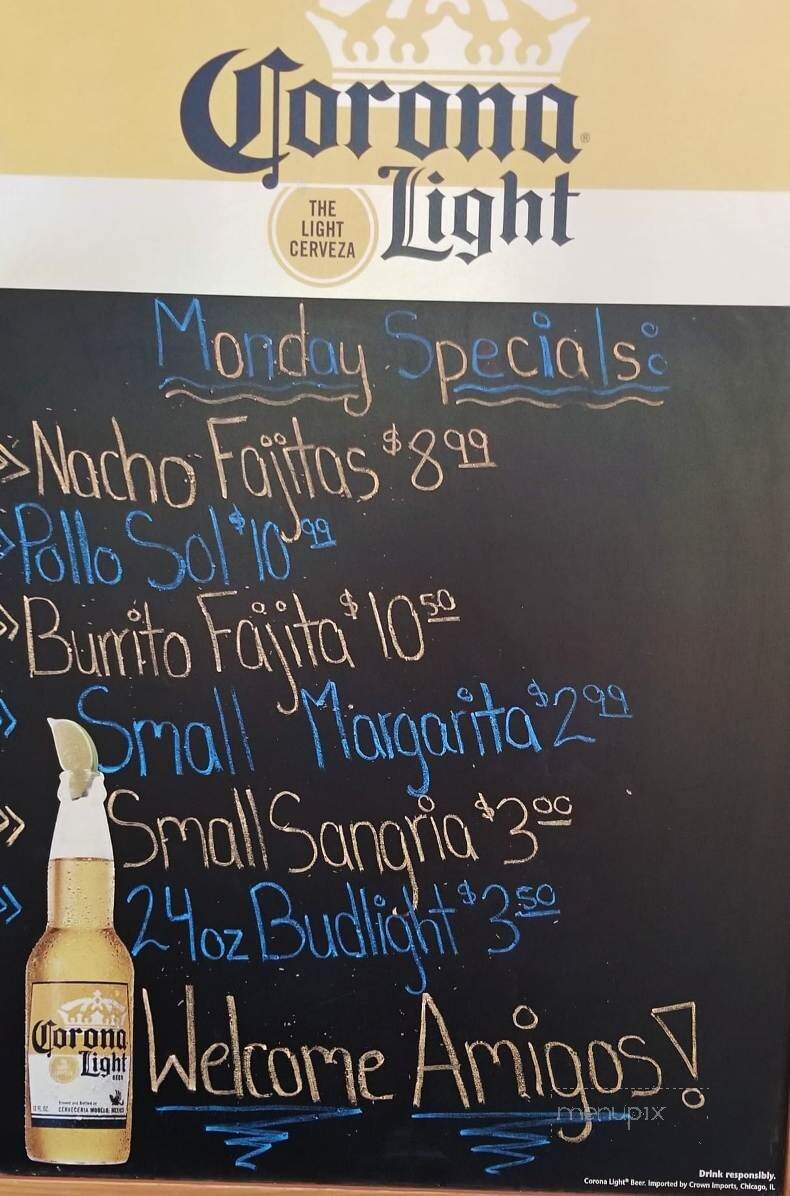 Corona
Light
THE
LIGHT
CERVEZA
Monday Specials:
» Nacho Fajitas $8.99
» Pollo Sol $10.99
» Burrito Fajita $10.50
» Small Margarita $2.99
» Small Sangria $3.00
» 24oz Budlight $3.50
Welcome Amigos!
Corona
Light
BEER
CERVECERIA MODELO, MEXICO
menupix
Drink responsibly.
Corona Light® Beer. Imported by Crown Imports, Chicago, IL